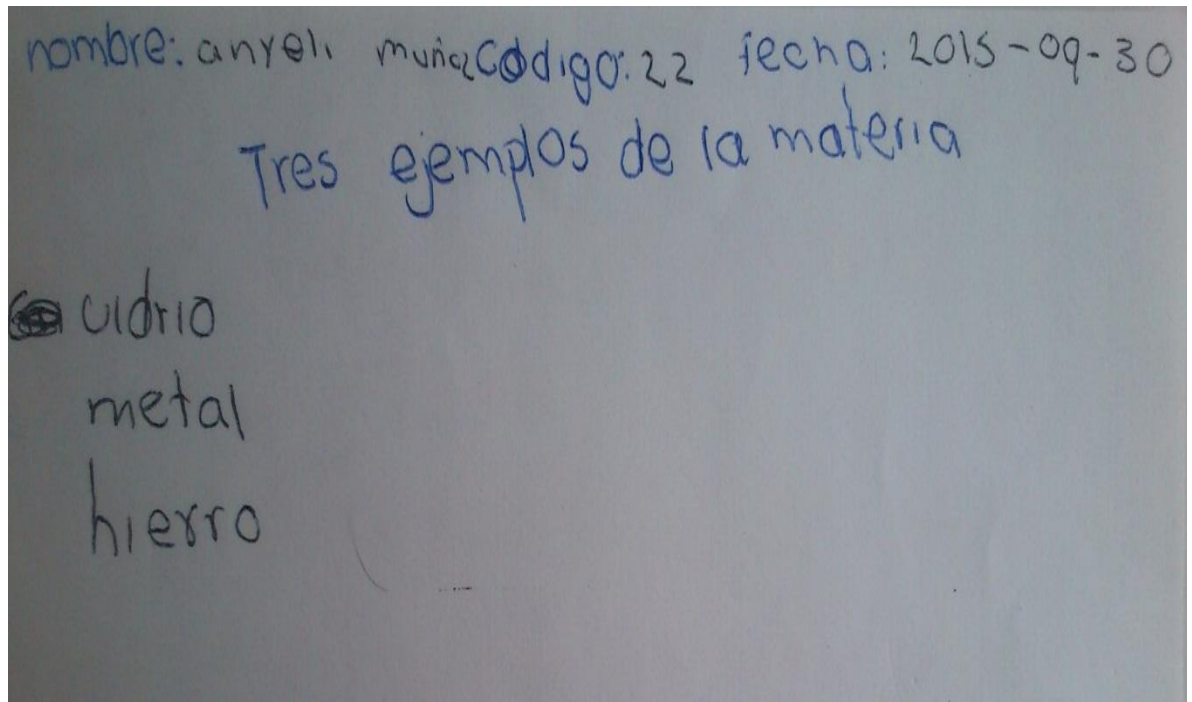 nombre: anyeli muñoz Código: 22 fecha: 2015-09-30
Tres ejemplos de la materia
vidrio
metal
hierro